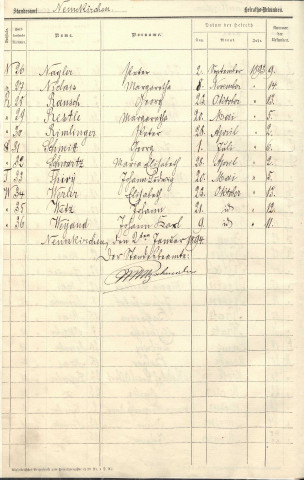 Standesamt Neunkirchen. Heiraths-Urkunden.
Name. Vorname. Datum der Heirath
Tag Monat Jahr
N 26 Nagler Peter 2. September 1893 9.
" 27 Nicolaÿ Margaretha 8. November " 14.
R 28 Rausch Georg 22. Oktober " 13.
" 29 Restle Margaretha 20. Mai " 5.
" 30 Rimlinger Peter 28. April " 2.
S 31 Schmitt Georg 1. Juli " 6.
" 32 Schwartz Maria Elisabeth 28. April " 2.
T 33 Thirÿ Johann Ludwig 20. Mai " 5.
W 34 Weiler Elisabeth 22. Oktober " 13.
" 35 Weis Johann 21. " " 12.
" 36 Weyand Johann Karl 9. " " 11.
Neunkirchen, den 2ten Januar 1894.
Der Standesbeamte: